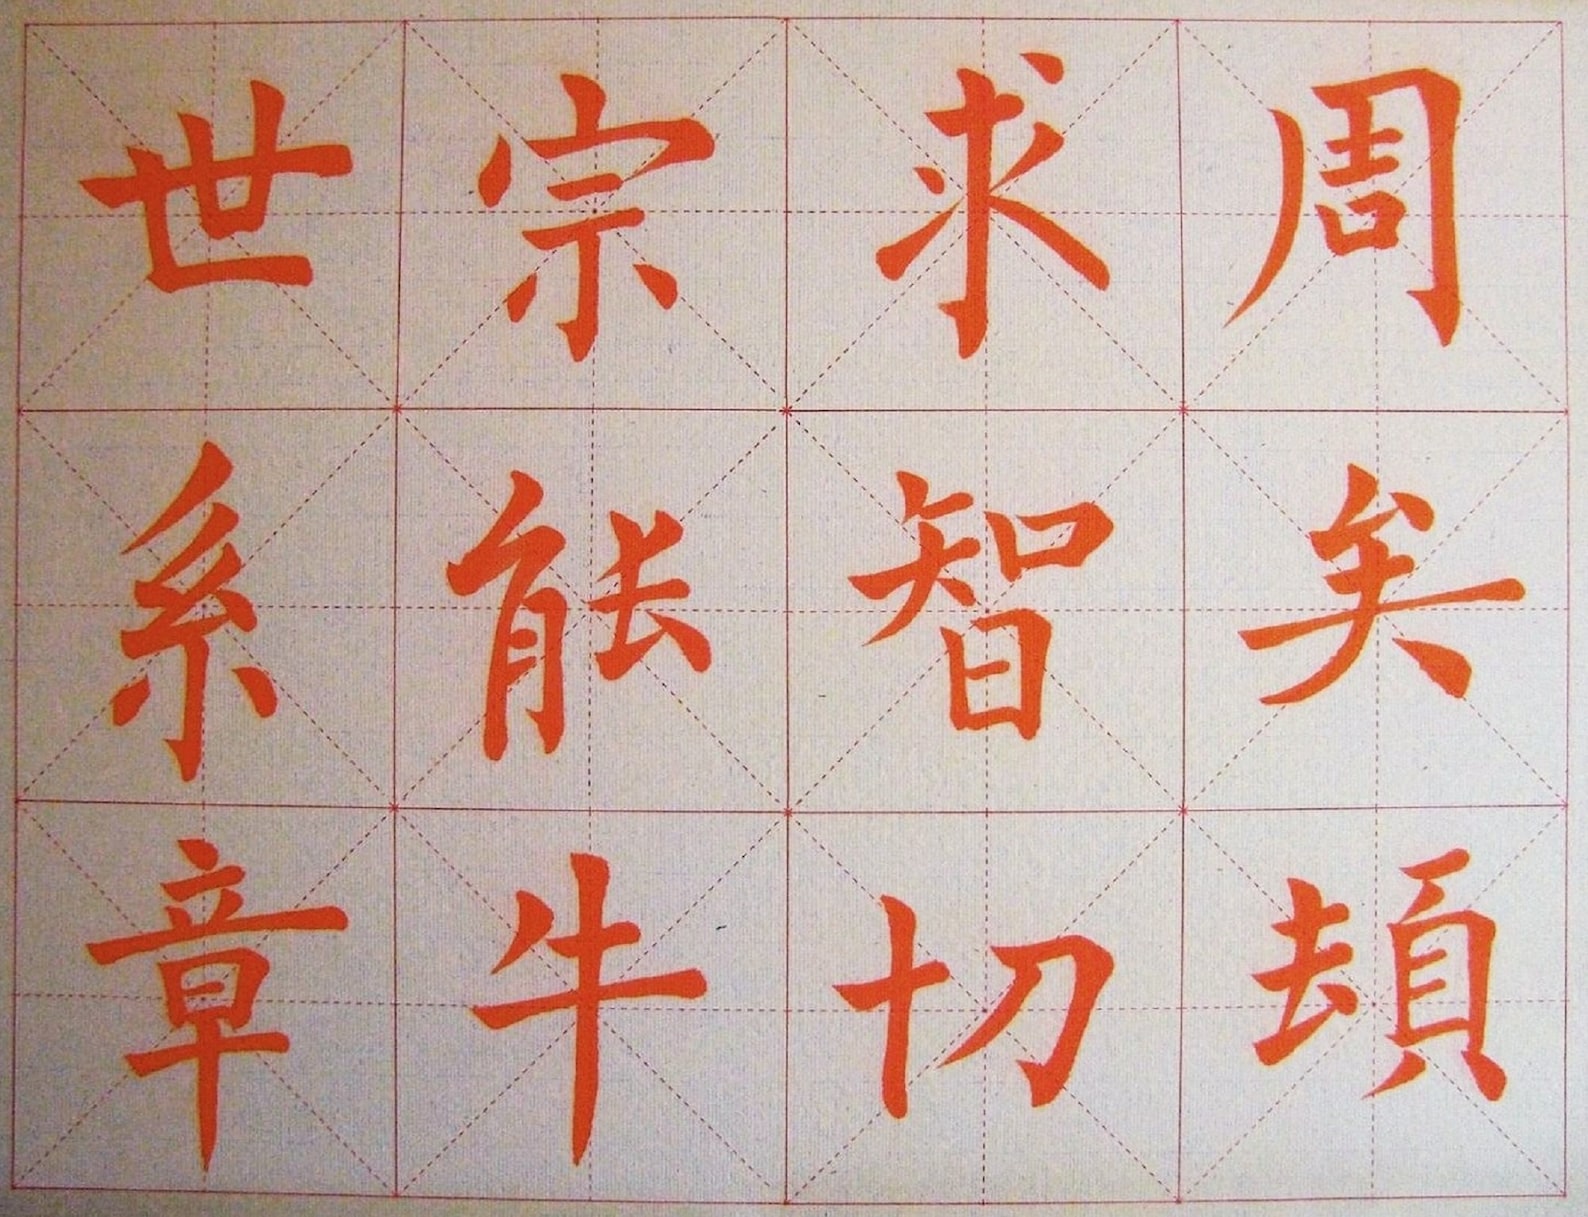 世宗求周
系能智矣
章牛切